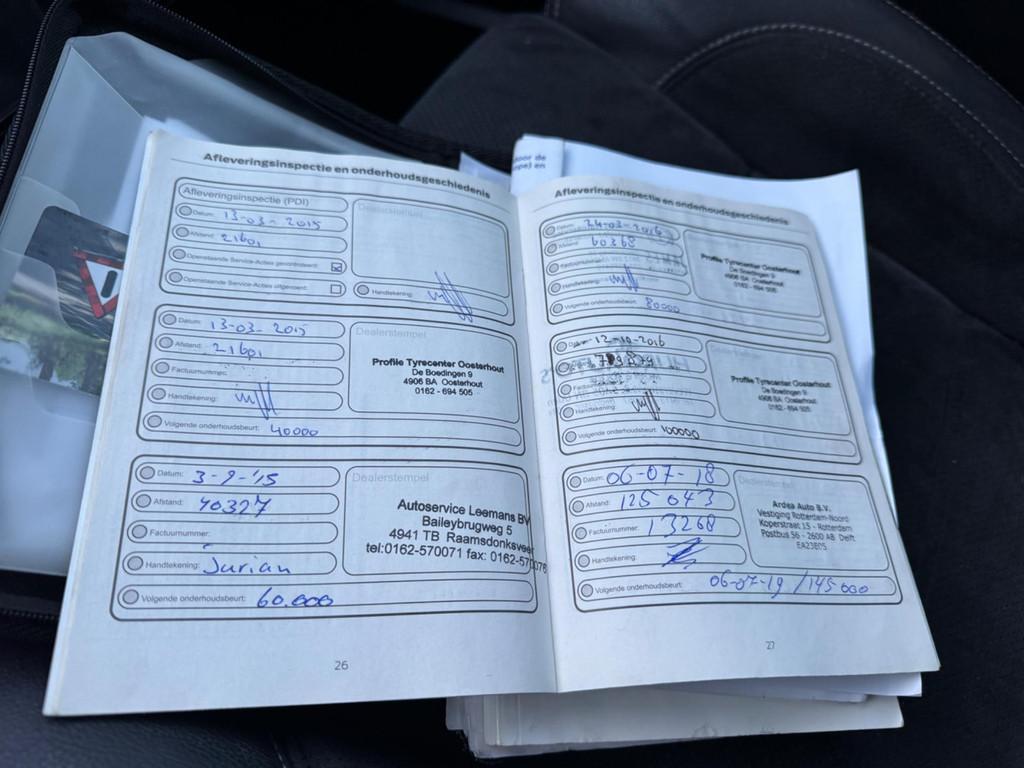 Afleveringsinspectie en onderhoudsgeschiedenis
Afleveringsinspectie (PDI)
Datum: 13-03-2015
Afstand: 21601
Openstaande Service-Acties gecontroleerd:
Openstaande Service-Acties uitgevoerd:
Dealerstempel
Handtekening:
Datum: 13-03-2015
Afstand: 21601
Factuurnummer:
Handtekening:
Volgende onderhoudsbeurt: 40000
Dealerstempel
Profile Tyrecenter Oosterhout
De Boedingen 9
4906 BA Oosterhout
0162 - 694 505
Datum: 3-9-'15
Afstand: 40327
Factuurnummer:
Handtekening: Jurian
Volgende onderhoudsbeurt: 60.000
Dealerstempel
Autoservice Leemans BV
Baileybrugweg 5
4941 TB Raamsdonksveer
tel:0162-570071 fax: 0162-570076
26
oor de
en
Afleveringsinspectie en onderhoudsgeschiedenis
Datum: 24-03-2016
Afstand: 60368
Factuurnummer:
Handtekening:
Volgende onderhoudsbeurt: 80000
Profile Tyrecenter Oosterhout
De Boedingen 9
4906 BA Oosterhout
0162 - 694 505
12-10-2016
Handtekening:
Volgende onderhoudsbeurt: 100000
Profile Tyrecenter Oosterhout
De Boedingen 9
4906 BA Oosterhout
0162 - 694 505
Datum: 06-07-18
Afstand: 125043
Factuurnummer: 13268
Handtekening:
Volgende onderhoudsbeurt: 06-07-19 / 145 000
Dealerstempel
Ardea Auto B.V.
Vestiging Rotterdam-Noord
Koperstraat 15 - Rotterdam
Postbus 56 - 2600 AB Delft
EA23E05
27